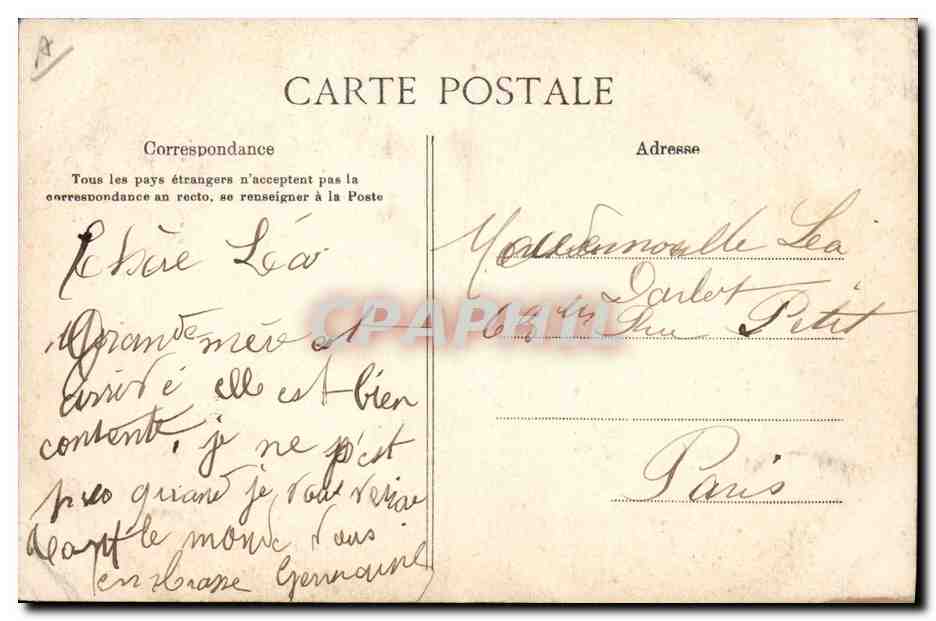 A
CARTE POSTALE
Correspondance
Tous les pays étrangers n'acceptent pas la
correspondance au recto, se renseigner à la Poste
Chère Léa
Grande mère est
arrivé elle est bien
contente, je ne
quand je
le monde Vous
enbrasse Germaine
Adresse
Mademoiselle Léa
Darlot
63 bis Rue Petit
Paris
CPAPHIL